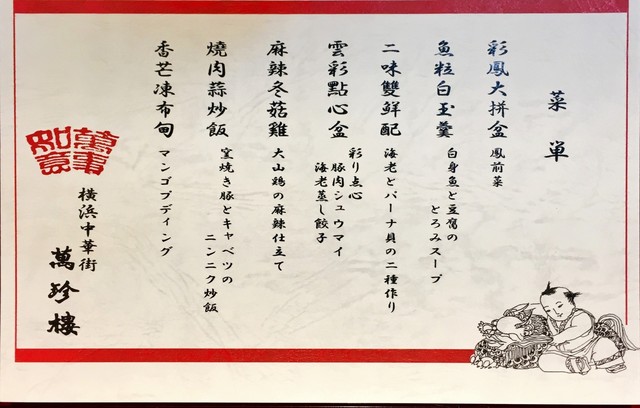 菜単
彩鳳大拼盆
鳳前菜
魚粒白玉羹
白身魚と豆腐の
とろみスープ
二味雙鮮配
海老とパーナ貝の二種作り
雲彩點心盆
彩り点心
豚肉シュウマイ
海老蒸し餃子
麻辣冬菇雞
大山鶏の麻辣仕立て
燒肉蒜炒飯
窯焼き豚とキャベツの
ニンニク炒飯
香芒凍布甸
マンゴプディング
萬事如意
横浜中華街
萬珍樓